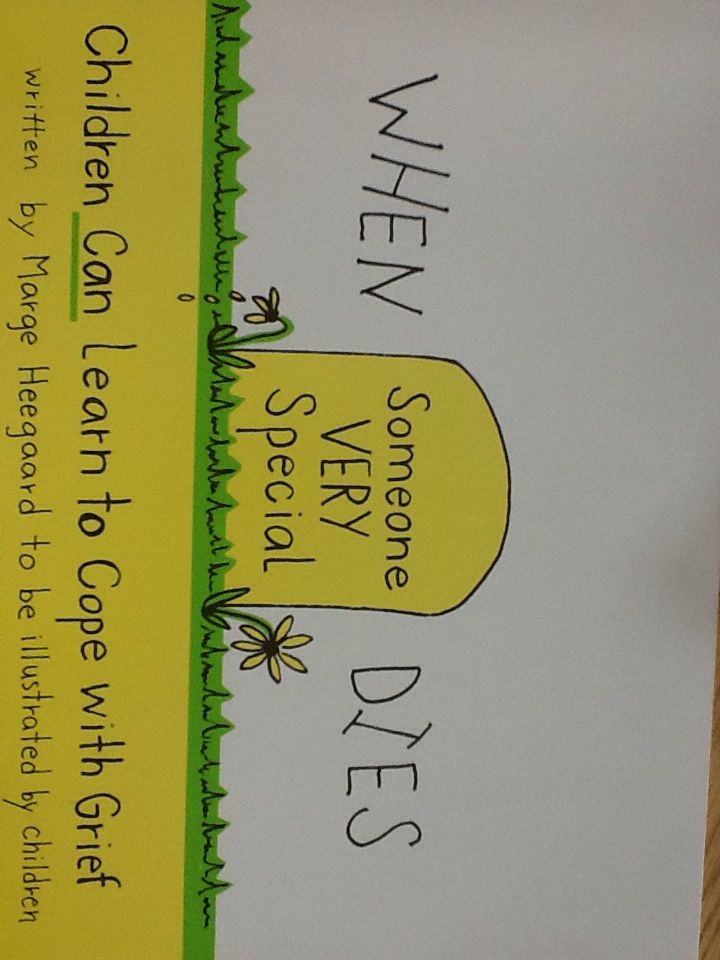 WHEN
Someone
VERY
Special
DIES
Children Can Learn to Cope with Grief
written by Marge Heegaard to be illustrated by children